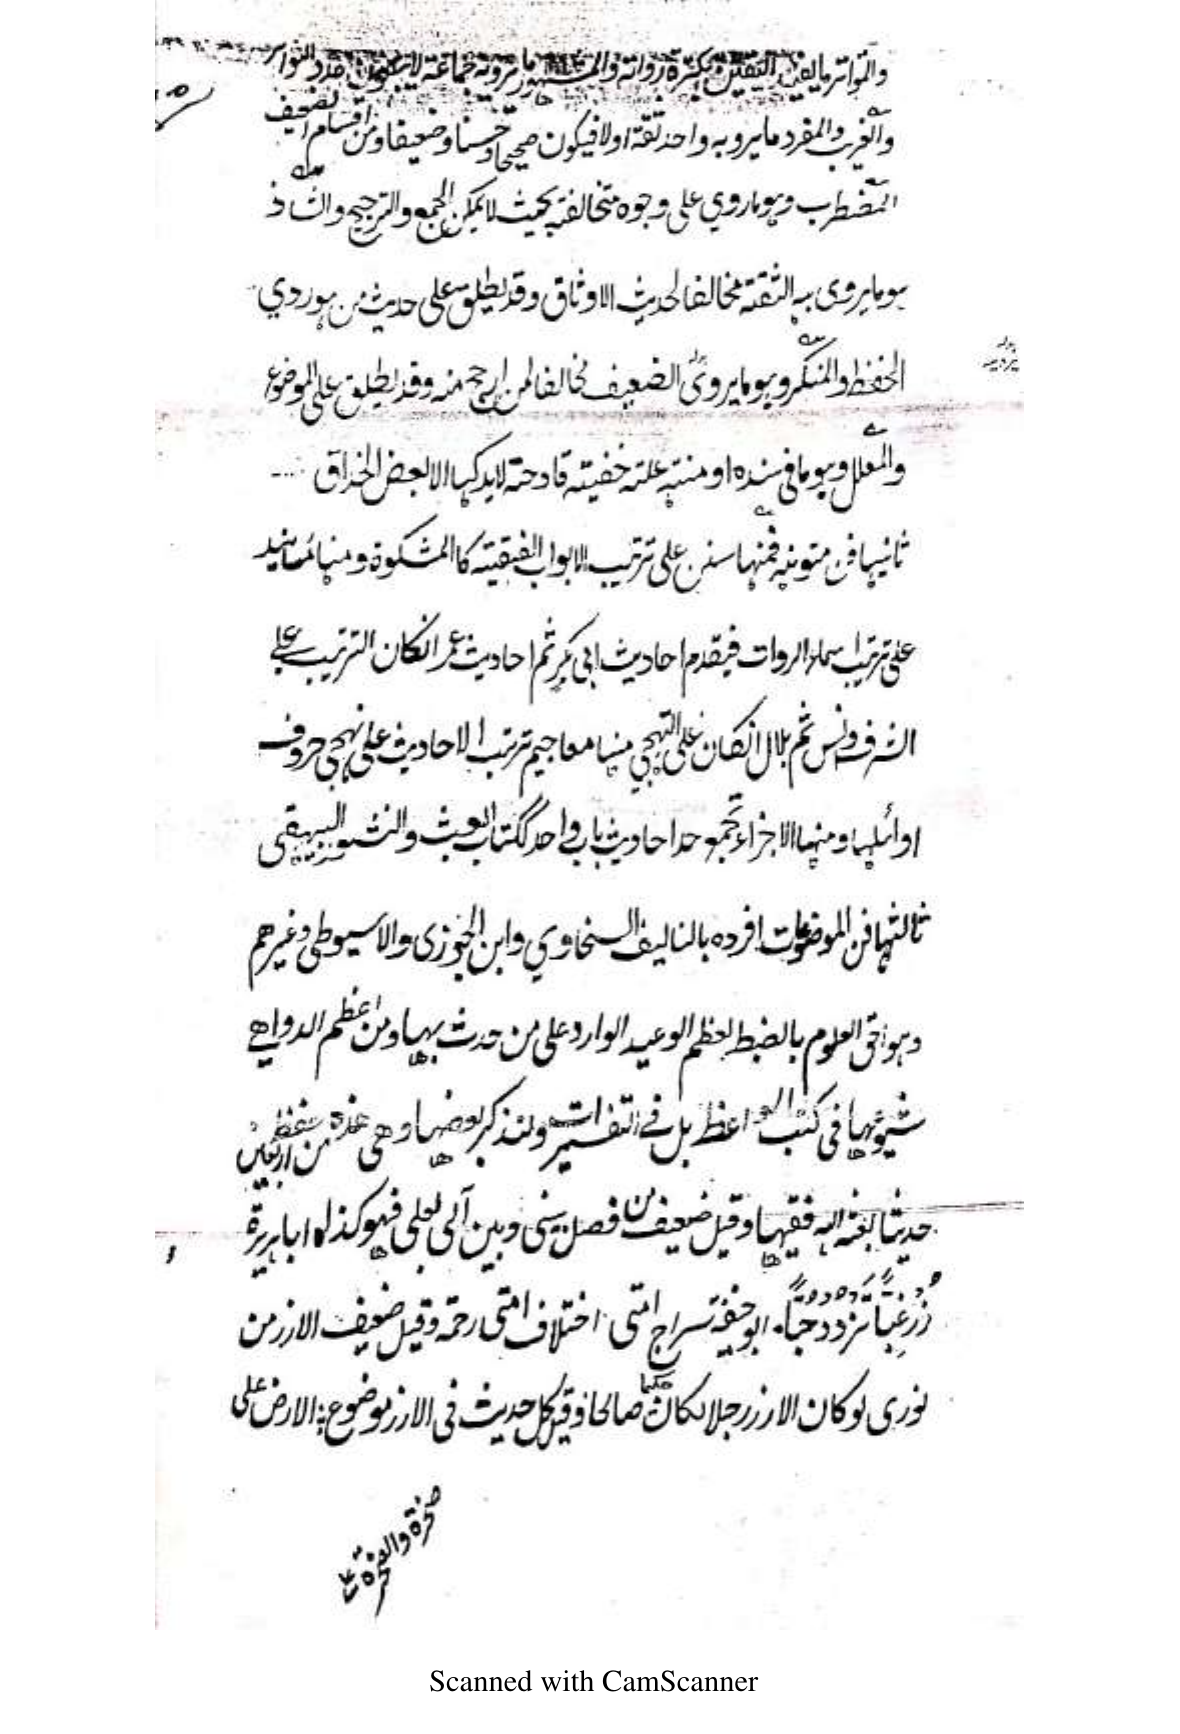 والمتواتر ما يفيد اليقين بكثرة رواته والمشهور ما يرويه جماعة لا يبلغون عدد التواتر
والغريب والمفرد ما يرويه واحد ثقة اولا فيكون صحيحا وحسنا وضعيفا ومن اقسام الضعيف
المضطرب وهو ما روي على وجوه متخالفة بحيث لا يمكن الجمع والترجيح والشاذ
هو ما يروى به الثقة مخالفا لحديث الاوثاق وقد يطلق على حديث من هو ردي
الحفظ والمنكر وهو ما يروى الضعيف مخالفا لمن ارجح منه وقد يطلق على الموضوع
والمعلل وهو ما في سنده او متنه علته خفيته قادحة لا يدركها الا لبعض الحذاق
ثانيها فن متونه فمنها سنن على ترتيب الابواب الفقيته كالمشكوة ومنها مسانيد
على ترتيب اسماء الروات فيقدم احاديث ابى بكر ثم احاديث عمر انكان الترتيب على
الشرف وانس ثم بلال انكان على التهجي منها معاجيم ترتب الاحاديث على نهجي حروف
اوائلها ومنها الاجزاء تجمع احاديث باب واحد ككتاب البعث والنشور للبيهقى
ثالثها فن الموضوعات افرده بالتاليف السخاوي وابن الجوزى والاسيوطى وغيرهم
وهو احق العلوم بالضبط لعظم الوعيد الوارد على من حدث بها ومن اعظم الدواهے
شيوعها فى كتب المواعظ بل فے التفسيرات ولنذكر بعضها وهى هذه من اربعين
حديثا بغته اله فقيها وقيل ضعيف من فصل بينى وبين آلى بعلى فهو كذا ابا هريرة
زُرْ غِبًّا تَزْدَدْ حُبًّا ابو حنيفة سراج امتى اختلاف امتى رحمة وقيل ضعيف الارز من
نورى لو كان الارز رجلا لكان حكيما صالحا وقيل كل حديث فى الارز موضوع الارض على
صخرة والصخرة على